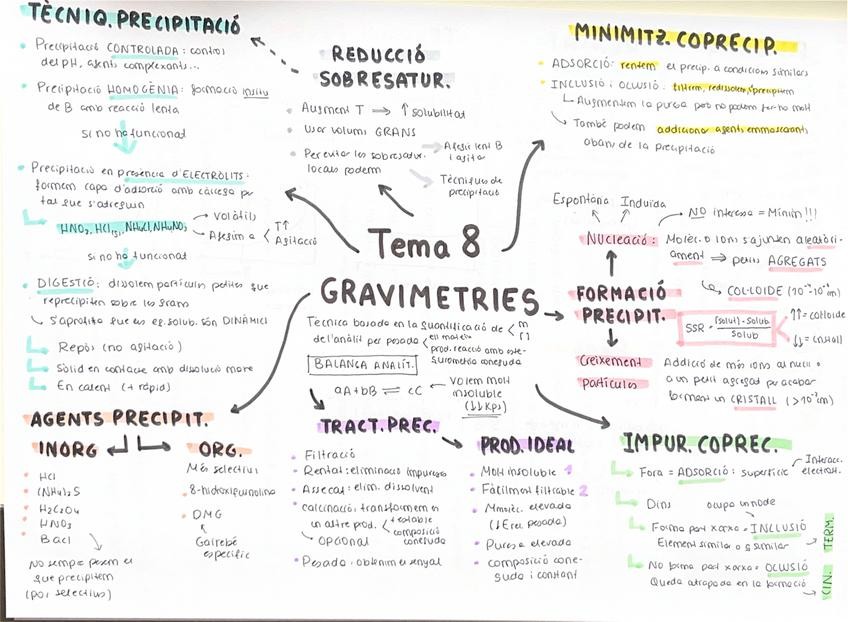 TÈCNIQ. PRECIPITACIÓ
• Precipitació CONTROLADA: control
del pH, agents complexants...
• Precipitació HOMOGÈNIA: formació insitu
de B amb reacció lenta
si no ha funcionat
• Precipitació en presència d'ELECTRÒLITS:
formem capa d'adsorció amb càrrega per
tal que s'adreguin
HNO3, HCl, NH4Cl, NH4NO3
→ Volàtils
→ Afegim a < T↑
Agitació
si no ha funcionat
• DIGESTIÓ: dissolem partícules petites que
reprecipiten sobre les grans
↳ S'aprofita que els eq. solub. són DINÀMICS
Repòs (no agitació)
Sòlid en contacte amb dissolució mare
En calent (+ ràpid)
REDUCCIÓ
SOBRESATUR.
• Augment T → ↑ solubilitat
• Usar volums GRANS
• Per evitar les sobresatur.
locals podem
→ Afegir lent B
i agitar
→ Tècniques de
precipitació
MINIMITZ. COPRECIP.
• ADSORCIÓ: rentem el precip. a condicions similars
• INCLUSIÓ i OCLUSIÓ: filtrem, redissolem, i precipitem
↳ Augmentem la puresa però no podem fer-ho molt
↳ També podem addicionar agents emmascarants
abans de la precipitació
Tema 8
GRAVIMETRIES
Tècnica basada en la quantificació de < m
n
de l'anàlit per pesada
en mateix
prod. reacció amb este-
quiometria coneguda
BALANÇA ANALÍT.
aA+bB ⇌ cC
← Volem molt
insoluble
(↓↓Kps)
Espontània Induïda
Nucleació:
→ NO interessa = Mínim!!!
Molèc. o ions s'ajunten aleatòri-
ament ⇒ petits AGREGATS
↳ COL·LOIDE
FORMACIÓ
PRECIPIT.
SSR = [solut] - Solub. / Solub
↑↑ = col·loide
↓↓ = cristall
Creixement
partícules
Addició de més ions al nucli o
a un petit agregat per acabar
formant un CRISTALL
AGENTS PRECIPIT.
INORG
• HCl
• (NH4)2S
• H2C2O4
• HNO3
• BaCl
No sempre passem el
que precipitem
(poc selectius)
ORG.
Més selectius
• 8-hidroxiquinolina
• DMG
Gairebé
específic
TRACT. PREC.
• Filtració
• Rentat: eliminació impureses
• Assecat: elim. dissolvent
• Calcinació: transformem en
un altre prod. < + estable
composició
coneguda
↳ OPCIONAL
• Pesada: obtenim el senyal
PROD. IDEAL
• Molt insoluble 1
• Fàcilment filtrable 2
• Mmolèc. elevada
(↓Erel pesada)
• Puresa elevada
• Composició cone-
guda i constant
IMPUR. COPREC.
Fora = ADSORCIÓ: superfície
→ Interacc.
electrost.
Dins
ocupa un node
↳ Forma part xarxa = INCLUSIÓ
Element similar o g similar
↳ No forma part xarxa = OCLUSIÓ
Queda atrapada en la formació
TERM.
CIN.